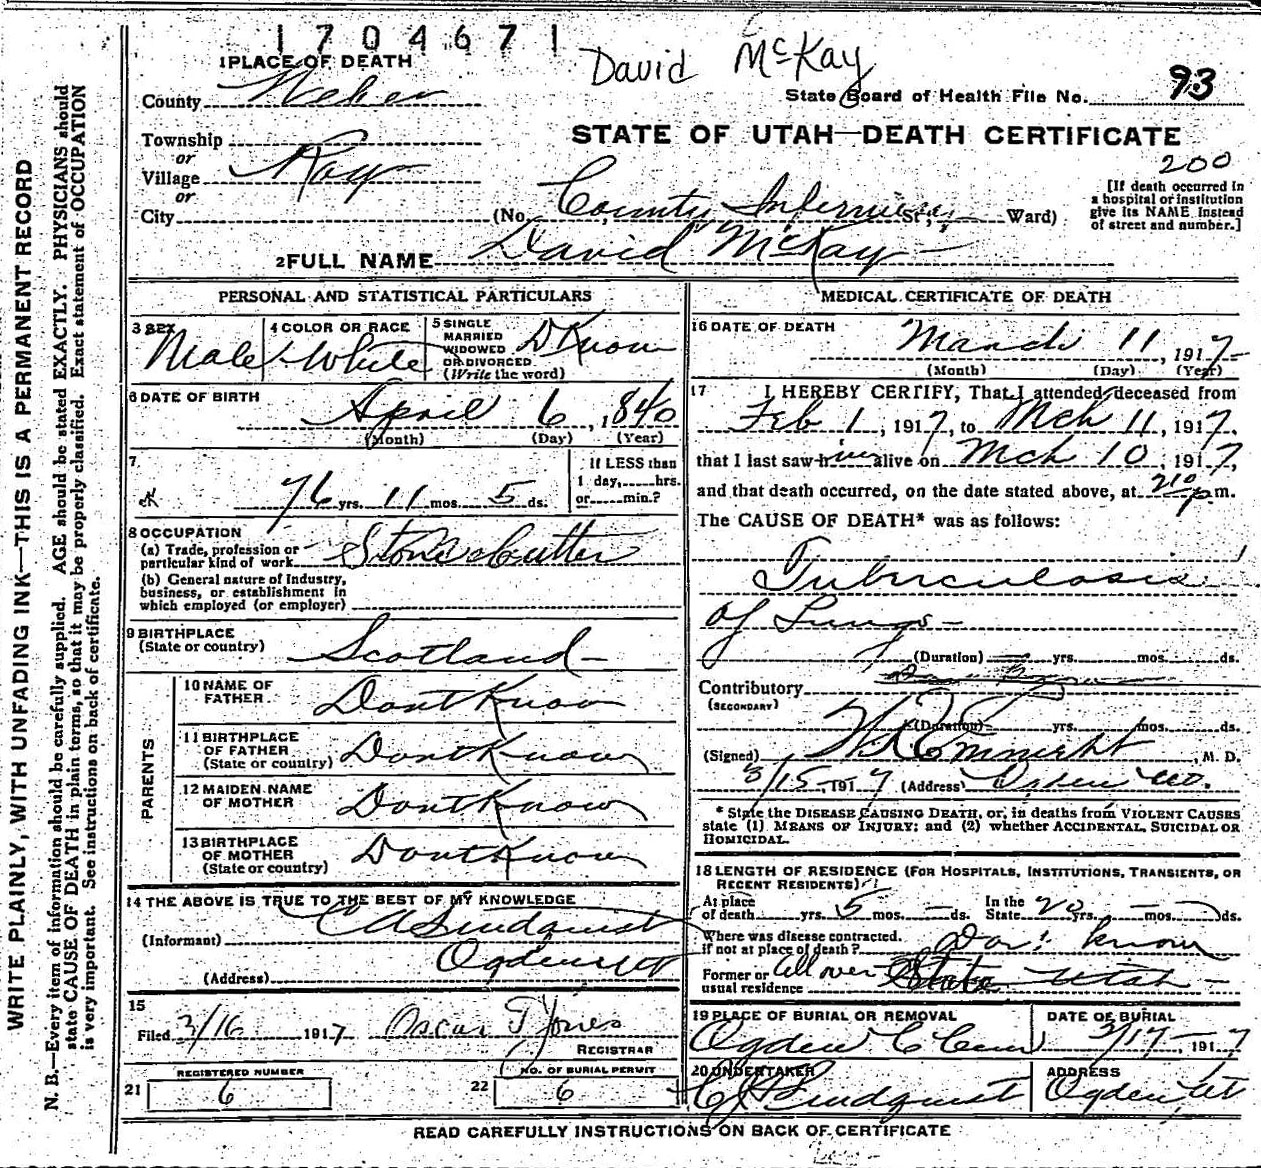 1704671
David McKay
1 PLACE OF DEATH
County Weber
State Board of Health File No. 93
STATE OF UTAH—DEATH CERTIFICATE
200
Township
or
Village Roy
or
City
(No. County Infirmary St.; Ward)
[If death occurred in
a hospital or institution
give its NAME instead
of street and number.]
2 FULL NAME David McKay
PERSONAL AND STATISTICAL PARTICULARS
3 SEX Male
4 COLOR OR RACE White
5 SINGLE
MARRIED
WIDOWED
OR DIVORCED
(Write the word) D Know
6 DATE OF BIRTH
April 6, 1840
(Month) (Day) (Year)
7
76 yrs. 11 mos. 5 ds.
If LESS than
1 day, hrs.
or min.?
8 OCCUPATION
(a) Trade, profession or
particular kind of work Stone Cutter
(b) General nature of industry,
business, or establishment in
which employed (or employer)
9 BIRTHPLACE
(State or country) Scotland
PARENTS
10 NAME OF
FATHER Dont Know
11 BIRTHPLACE
OF FATHER
(State or country) Dont Know
12 MAIDEN NAME
OF MOTHER Dont Know
13 BIRTHPLACE
OF MOTHER
(State or country) Dont Know
14 THE ABOVE IS TRUE TO THE BEST OF MY KNOWLEDGE
(Informant) C A Lindquist
(Address) Ogden Ut
15
Filed 3/16 1917 Oscar T Jones
REGISTRAR
REGISTERED NUMBER
21 6
NO. OF BURIAL PERMIT
22 6
MEDICAL CERTIFICATE OF DEATH
16 DATE OF DEATH
March 11, 1917
(Month) (Day) (Year)
17 I HEREBY CERTIFY, That I attended deceased from
Feb 1, 1917, to Mch 11, 1917,
that I last saw him alive on Mch 10, 1917,
and that death occurred, on the date stated above, at 2 10 p.m.
The CAUSE OF DEATH* was as follows:
Tuberculosis
of Lungs
(Duration) yrs. mos. ds.
Contributory
(SECONDARY)
(Duration) yrs. mos. ds.
(Signed) , M. D.
3/15, 1917 (Address) Ogden Ut.
* State the DISEASE CAUSING DEATH, or, in deaths from VIOLENT CAUSES
state (1) MEANS OF INJURY; and (2) whether ACCIDENTAL, SUICIDAL OR
HOMICIDAL.
18 LENGTH OF RESIDENCE (FOR HOSPITALS, INSTITUTIONS, TRANSIENTS, OR
RECENT RESIDENTS)
At place
of death yrs. 5 mos. ds. In the
State 20 yrs. mos. ds.
Where was disease contracted.
if not at place of death? Don't know
Former or
usual residence All over State Utah
19 PLACE OF BURIAL OR REMOVAL
Ogden C Cem
DATE OF BURIAL
3/17, 1917
20 UNDERTAKER
C J Lindquist
ADDRESS
Ogden, Ut
READ CAREFULLY INSTRUCTIONS ON BACK OF CERTIFICATE
WRITE PLAINLY, WITH UNFADING INK—THIS IS A PERMANENT RECORD
N. B.—Every item of information should be carefully supplied. AGE should be stated EXACTLY. PHYSICIANS should
state CAUSE OF DEATH in plain terms, so that it may be properly classified. Exact statement of OCCUPATION
is very important. See instructions on back of certificate.